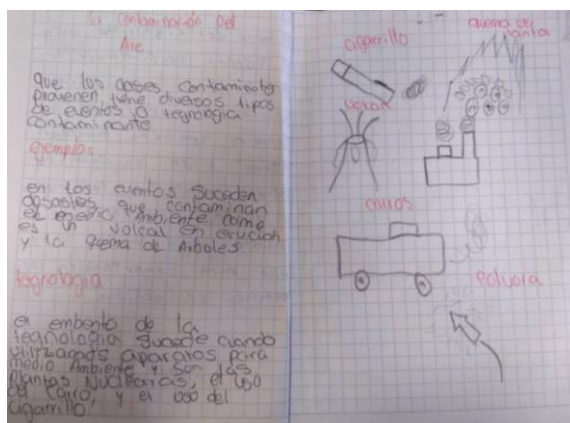 la contaminación Del
Aire
que los gases, contaminates
provenen tiene diversos tipos
de eventos o tegnologia
contaminante
ejemplos
en los eventos suceden
desastes que contaminan
el medio Ambiente como
es un volcal en erucion
y la quema de Arboles
tegnologia
el embento de la
tegnologia sucede cuando
utilizamos aparatos para
medio Ambiente y son elas
plantas Nuclearas, el uso
del carro, y el uso del
cigarrillo.
cigarrillo
quema de
llanta
volcan
carros
polvora